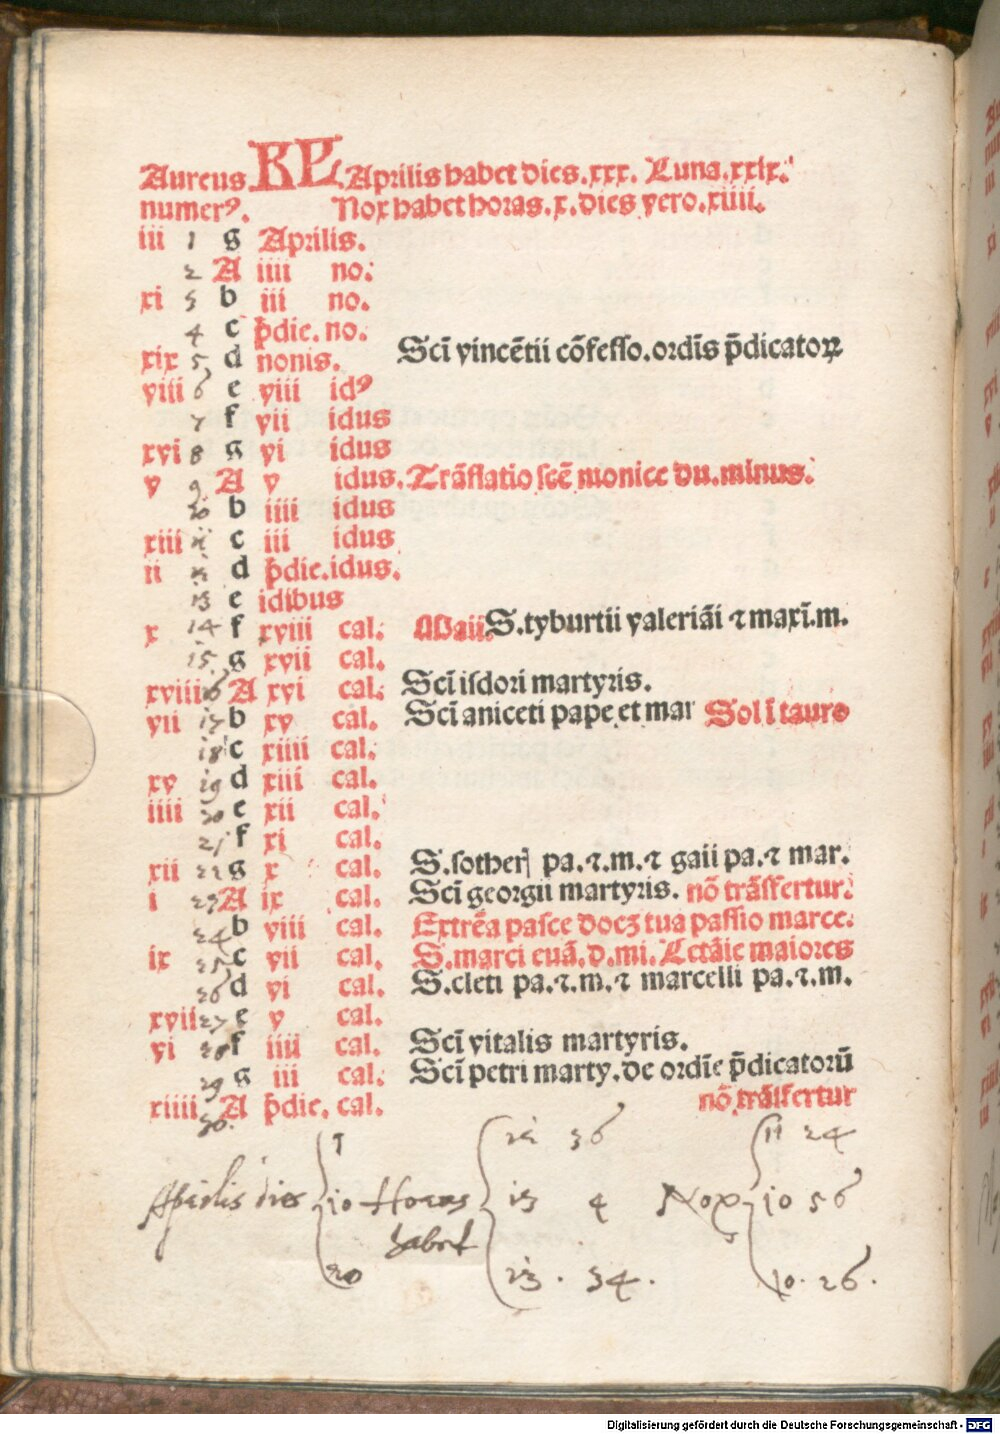 Aureus KL Aprilis habet dies .xxx. Luna .xxix.
numerꝰ. Nox habet horas .x. dies vero .xiiii.
iii 1 g Aprilis.
2 A iiii no.
xi 3 b iii no.
4 c p̄die. no.
xix 5 d nonis. Sci̅ vince̅tii co̅fesso. ordi̅s p̄dicatoꝝ
viii 6 e viii idꝰ
7 f vii idus
xvi 8 g vi idus
v 9 A v idus. Tra̅slatio sce̅ monice du. minus.
10 b iiii idus
xiii 11 c iii idus
ii 12 d p̄die. idus.
13 e idibus
x 14 f xviii cal. Maii. S. tyburtii valeria̅i ⁊ maxi̅. m.
15 g xvii cal.
xviii 16 A xvi cal. Sci̅ isdori martyris.
vii 17 b xv cal. Sci̅ aniceti pape et mar Sol i̅ tauro
18 c xiiii cal.
xv 19 d xiii cal.
iiii 20 e xii cal.
21 f xi cal.
xii 22 g x cal. S. sother pa. ⁊. m. ⁊ gaii pa. ⁊ mar.
i 23 A ix cal. Sci̅ georgii martyris. no̅ tra̅sfertur.
24 b viii cal. Extre̅a pasce docꝫ tua passio marce.
ix 25 c vii cal. S. marci eua̅. d. mi. Leta̅ie maiores
26 d vi cal. S. cleti pa. ⁊. m. ⁊ marcelli pa. ⁊. m.
xvii 27 e v cal.
vi 28 f iiii cal. Sci̅ vitalis martyris.
29 g iii cal. Sci̅ petri marty. de ordi̅e p̄dicatoru̅
xiiii 30. A p̄die. cal. no̅ tra̅sfertur
1 12 36 11 24
Aprilis dies 10 Horas 13 4 Nox 10 56
habet
20 13. 34. 10. 26.
Digitalisierung gefördert durch die Deutsche Forschungsgemeinschaft - DFG